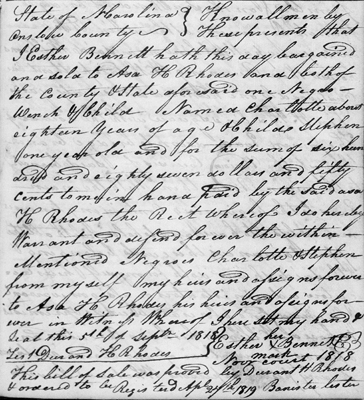 State of N Carolina } Know all men by
Onslow County } These presents that
I Esther Bennett hath this day bargained
and sold to Asa H Rhodes and both of
the County & State aforesaid one Negro
Wench & Child Named Charlotte about
eighteen Years of age & Childs Stephen
one year old and for the sum of six hun
dred and eighty seven dollars and fifty
Cents to me in hand paid by the said Asa
H Rhodes the Reit Whereof I do hereby
Warrant and defend forever the within
Mentiond Negroes Charlotte & Stephen
from myself my heirs and asigns forever
to Asa H. Rhodes his heirs and asigns for
ever in Witness Whereof I here set my hand &
Seal this 5th of Septr 1818 her
Test Durant H Rhodes } Esther X Bennett
mark
Nov Court 1818
This bill of sale was proved by Durant H Rhodes
& ordered to be Registerd Apl 27th 1819 Banister Lester